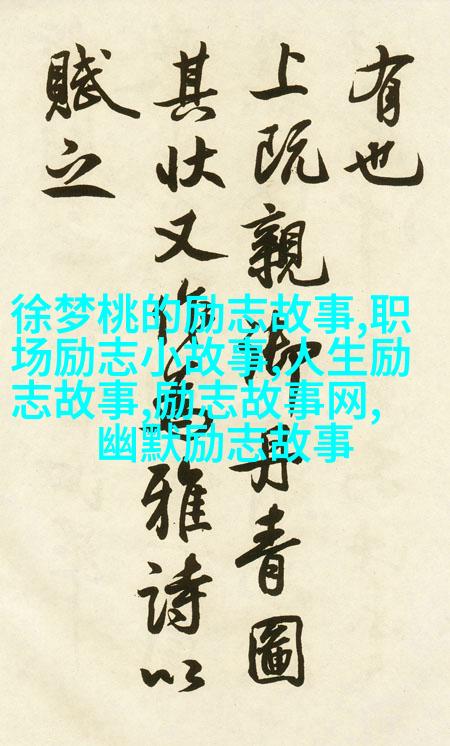 有也
上既親御丹青圖
其状又為雅詩以
賦之
徐梦桃的励志故事,职
场励志小故事,人生励
志故事,励志故事网,
幽默励志故事